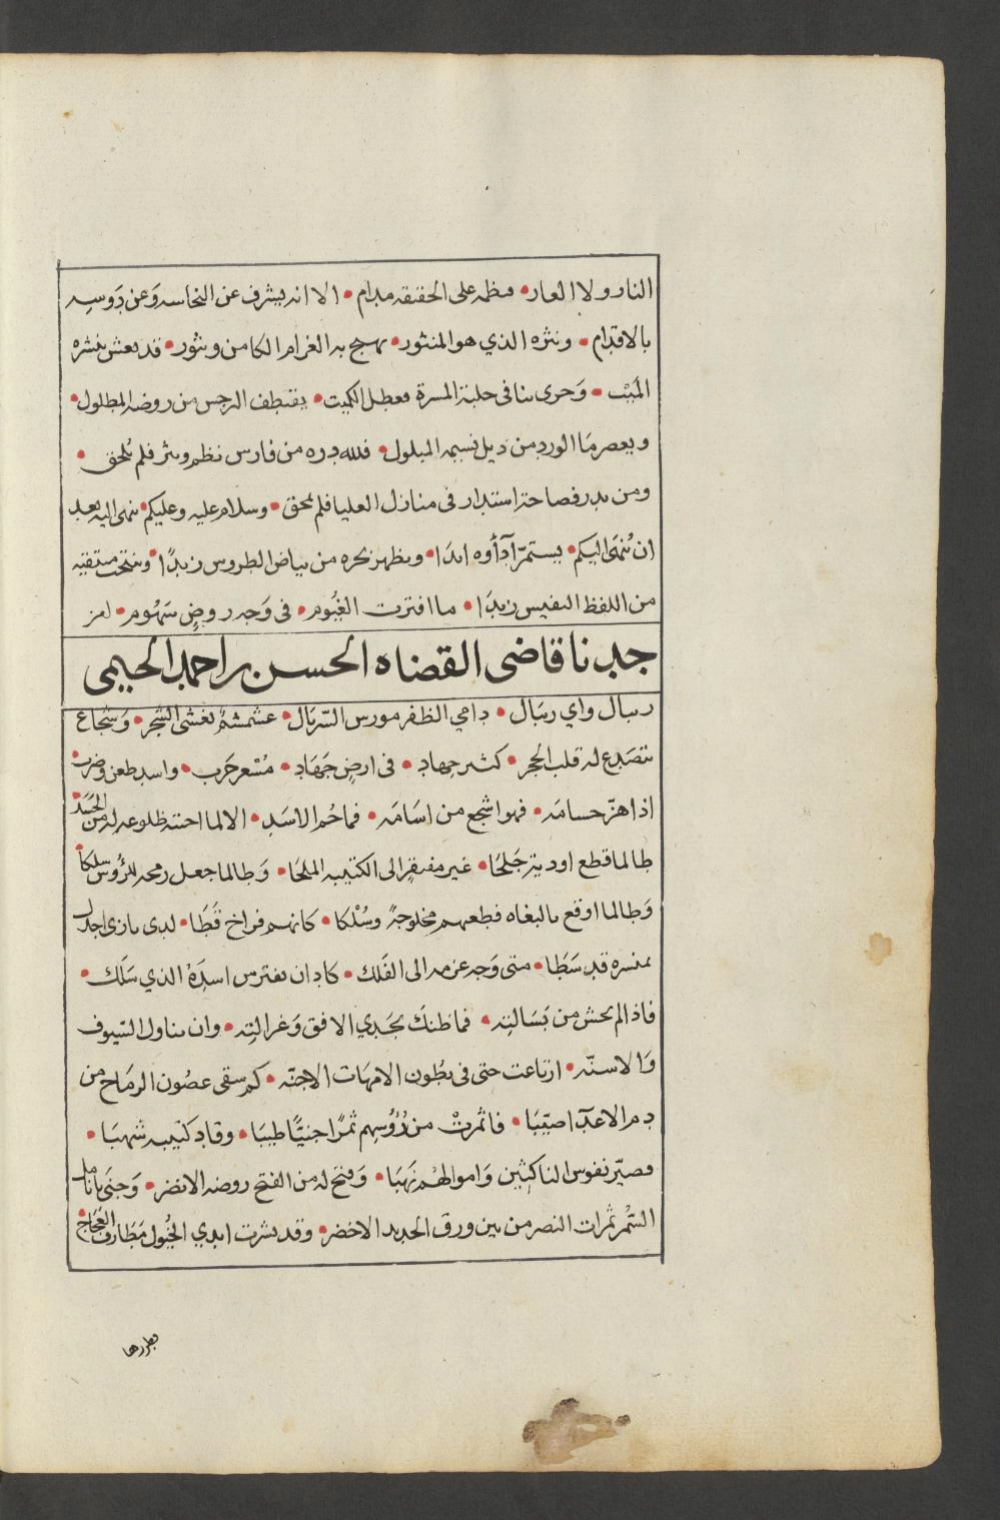 النار ولا العار • فنظمه على الحقيقه مدام • الا انه يشرف عن النحاسه وَعن دَوسه
بالاقدام • ونثره الذي هو المنثور • يهيج به الغرام الكامن ويثور • قد نعش بنشره
المَيْت • وَجرى بنا فى حلبة المسرة فعطل الكميت • يقتطف النرجس من روضه المطلول •
ويعصر مَا الورد من ذيل نسيمه المبلول • فلله دره من فارس نظم ونثر فلم يُلحق •
ومن بدر فصاحة استدار فى منازل العليا فلم يمحق • وسلام عليه وعليكم • ننهى اليه بعد
ان نُنهىَ اليكم • يستمرّ آدآؤه ابدًا • ويظهر بحره من بياض الطروس زبدًا •
من اللفظ النفيس زبدَا • ما افترت الغيُوم • فى وَجه روضٍ سَهُوم •
جدنا قاضى القضاه الحسن بن احمد الحيمى
ريبال واي ريبَال • دامي الظفر مورس السّربَال • عشمشمٌ يغشى الشجر • وَشجاع
تتصَدع له قلب الحجر • كثير جهاد • فى ارض جَهَاد • مُسْعر حَرب • واسد طعن وضرب •
اذا هزّ حسامَه • فهو اشجع من اسَامَه • فما حُم الاسَد • الا لما احنته ظلوعه له من الحَسَد •
طالما قطع اودية جَلحَا • غير مفتقر الى الكتيبه الملحَا • وَطالما جعل رمحه للرُؤوس سِلكا •
وَطالما اوقع بالبغاه فطعهم مخلوجةً وسُلْكا • كانهم فراخ قَطَا • لدى بازى اجدل
بمنسره قد سَطَا • متى وَجه عزمه الى الفَلك • كاد ان يفترس اسدَهُ الذي سَلَك •
فاذا لم يخش من بَسَالته • فما ظنكَ بجَدي الافق وَغزالته • وان يناول السّيوف
وَالاسنّه • ارتاعت حتى فى بطُون الامهَات الاجنّه • كم سقى غصُون الرمَاح من
دم الاعدَآ صيّبَا • فاثمرتْ من رُؤسهم ثمرًا جنيًّا طيبَا • وقاد كتيبه شهبَا •
فصيّر نفوس الناكثين وَاموالهُم نَهبَا • وَفتح له من الفتح روضه الانضر • وَجنَى بانامل
السُّمْر ثمرات النصر من بين ورق الحديد الاخضر • وقد نشرت ايدي الخيُول مَطَارف العجَاج •
فطررها